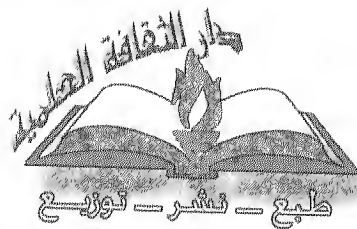 دار الثقافة العلمية
طبع – نشر – توزيع